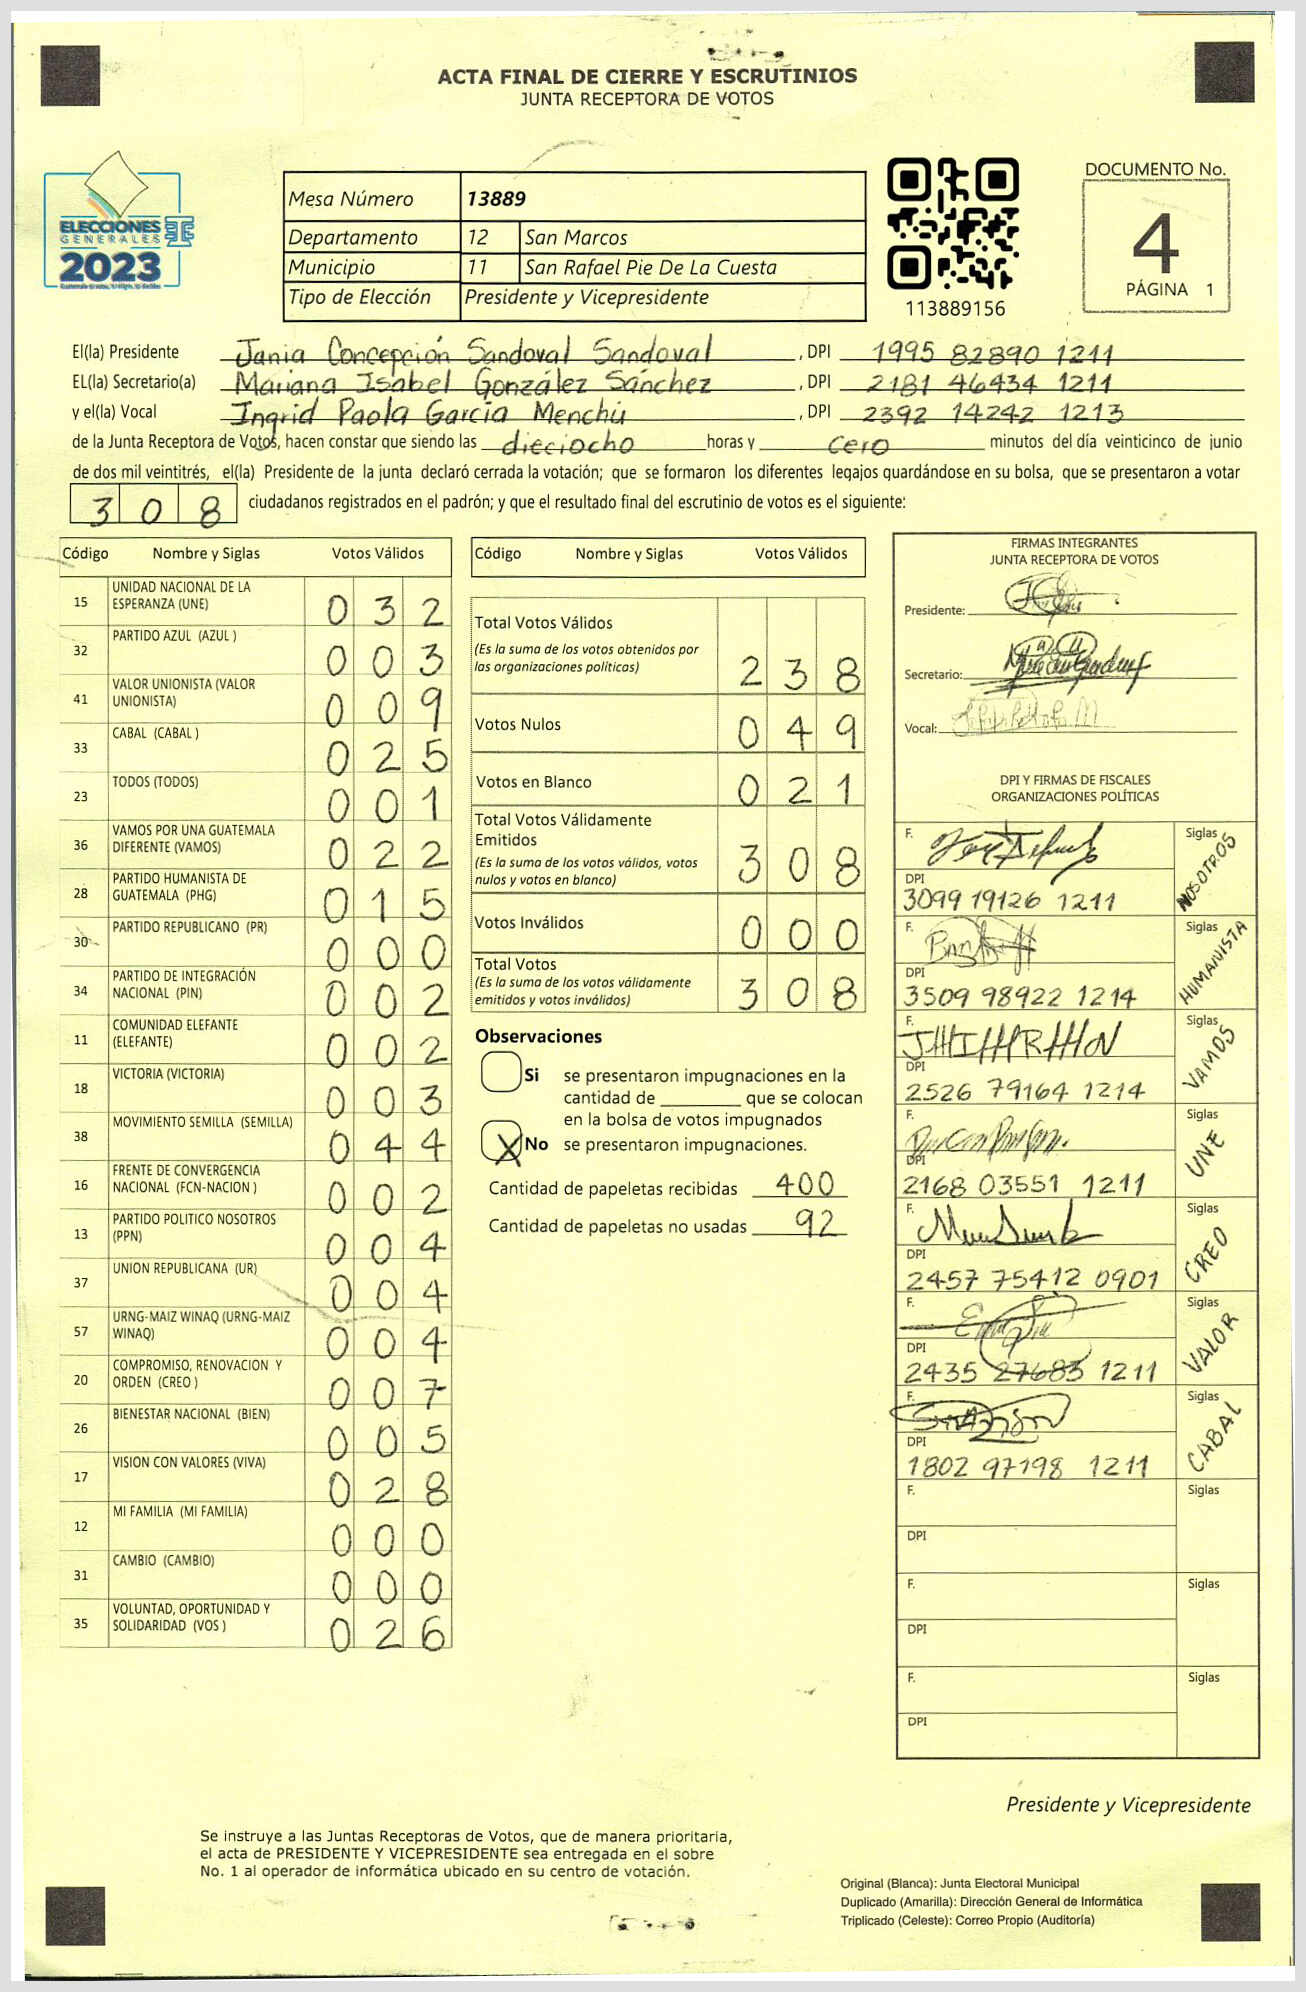 ACTA FINAL DE CIERRE Y ESCRUTINIOS
JUNTA RECEPTORA DE VOTOS
ELECCIONES
GENERALES
2023
Mesa Número 13889
Departamento 12 San Marcos
Municipio 11 San Rafael Pie De La Cuesta
Tipo de Elección Presidente y Vicepresidente
113889156
DOCUMENTO No.
4
PÁGINA 1
El(la) Presidente Jania Concepción Sandoval Sandoval , DPI 1995 82890 1211
EL(la) Secretario(a) Mariana Isabel González Sánchez , DPI 2181 46434 1211
y el(la) Vocal Ingrid Paola García Menchú , DPI 2392 14242 1213
de la Junta Receptora de Votos, hacen constar que siendo las dieciocho horas y cero minutos del día veinticinco de junio
de dos mil veintitrés, el(la) Presidente de la junta declaró cerrada la votación; que se formaron los diferentes legajos guardándose en su bolsa, que se presentaron a votar
308 ciudadanos registrados en el padrón; y que el resultado final del escrutinio de votos es el siguiente:
Código Nombre y Siglas Votos Válidos
15 UNIDAD NACIONAL DE LA ESPERANZA (UNE) 032
32 PARTIDO AZUL (AZUL ) 003
41 VALOR UNIONISTA (VALOR UNIONISTA) 009
33 CABAL (CABAL ) 025
23 TODOS (TODOS) 001
36 VAMOS POR UNA GUATEMALA DIFERENTE (VAMOS) 022
28 PARTIDO HUMANISTA DE GUATEMALA (PHG) 015
30 PARTIDO REPUBLICANO (PR) 000
34 PARTIDO DE INTEGRACIÓN NACIONAL (PIN) 002
11 COMUNIDAD ELEFANTE (ELEFANTE) 002
18 VICTORIA (VICTORIA) 003
38 MOVIMIENTO SEMILLA (SEMILLA) 044
16 FRENTE DE CONVERGENCIA NACIONAL (FCN-NACION ) 002
13 PARTIDO POLITICO NOSOTROS (PPN) 004
37 UNION REPUBLICANA (UR) 004
57 URNG-MAIZ WINAQ (URNG-MAIZ WINAQ) 004
20 COMPROMISO, RENOVACION Y ORDEN (CREO ) 007
26 BIENESTAR NACIONAL (BIEN) 005
17 VISION CON VALORES (VIVA) 028
12 MI FAMILIA (MI FAMILIA) 000
31 CAMBIO (CAMBIO) 000
35 VOLUNTAD, OPORTUNIDAD Y SOLIDARIDAD (VOS ) 026
Código Nombre y Siglas Votos Válidos
Total Votos Válidos 238
(Es la suma de los votos obtenidos por
las organizaciones políticas)
Votos Nulos 049
Votos en Blanco 021
Total Votos Válidamente
Emitidos 308
(Es la suma de los votos válidos, votos
nulos y votos en blanco)
Votos Inválidos 000
Total Votos 308
(Es la suma de los votos válidamente
emitidos y votos inválidos)
Observaciones
Si se presentaron impugnaciones en la
cantidad de ________ que se colocan
en la bolsa de votos impugnados
X No se presentaron impugnaciones.
Cantidad de papeletas recibidas 400
Cantidad de papeletas no usadas 92
FIRMAS INTEGRANTES
JUNTA RECEPTORA DE VOTOS
Presidente:
Secretario:
Vocal:
DPI Y FIRMAS DE FISCALES
ORGANIZACIONES POLÍTICAS
F. Siglas NOSOTROS
DPI 3099 19126 1211
F. Siglas HUMANISTA
DPI 3509 98922 1214
F. Siglas VAMOS
DPI 2526 79164 1214
F. Siglas UNE
DPI 2168 03551 1211
F. Siglas CREO
DPI 2457 75412 0901
F. Siglas VALOR
DPI 2435 27683 1211
F. Siglas CABAL
DPI 1802 97198 1211
F. Siglas
DPI
F. Siglas
DPI
F. Siglas
DPI
Presidente y Vicepresidente
Se instruye a las Juntas Receptoras de Votos, que de manera prioritaria,
el acta de PRESIDENTE Y VICEPRESIDENTE sea entregada en el sobre
No. 1 al operador de informática ubicado en su centro de votación.
Original (Blanca): Junta Electoral Municipal
Duplicado (Amarilla): Dirección General de Informática
Triplicado (Celeste): Correo Propio (Auditoría)